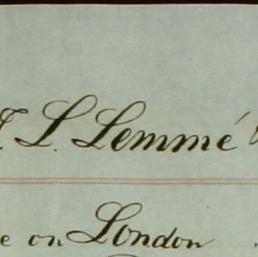 L. Lemmé
e on London